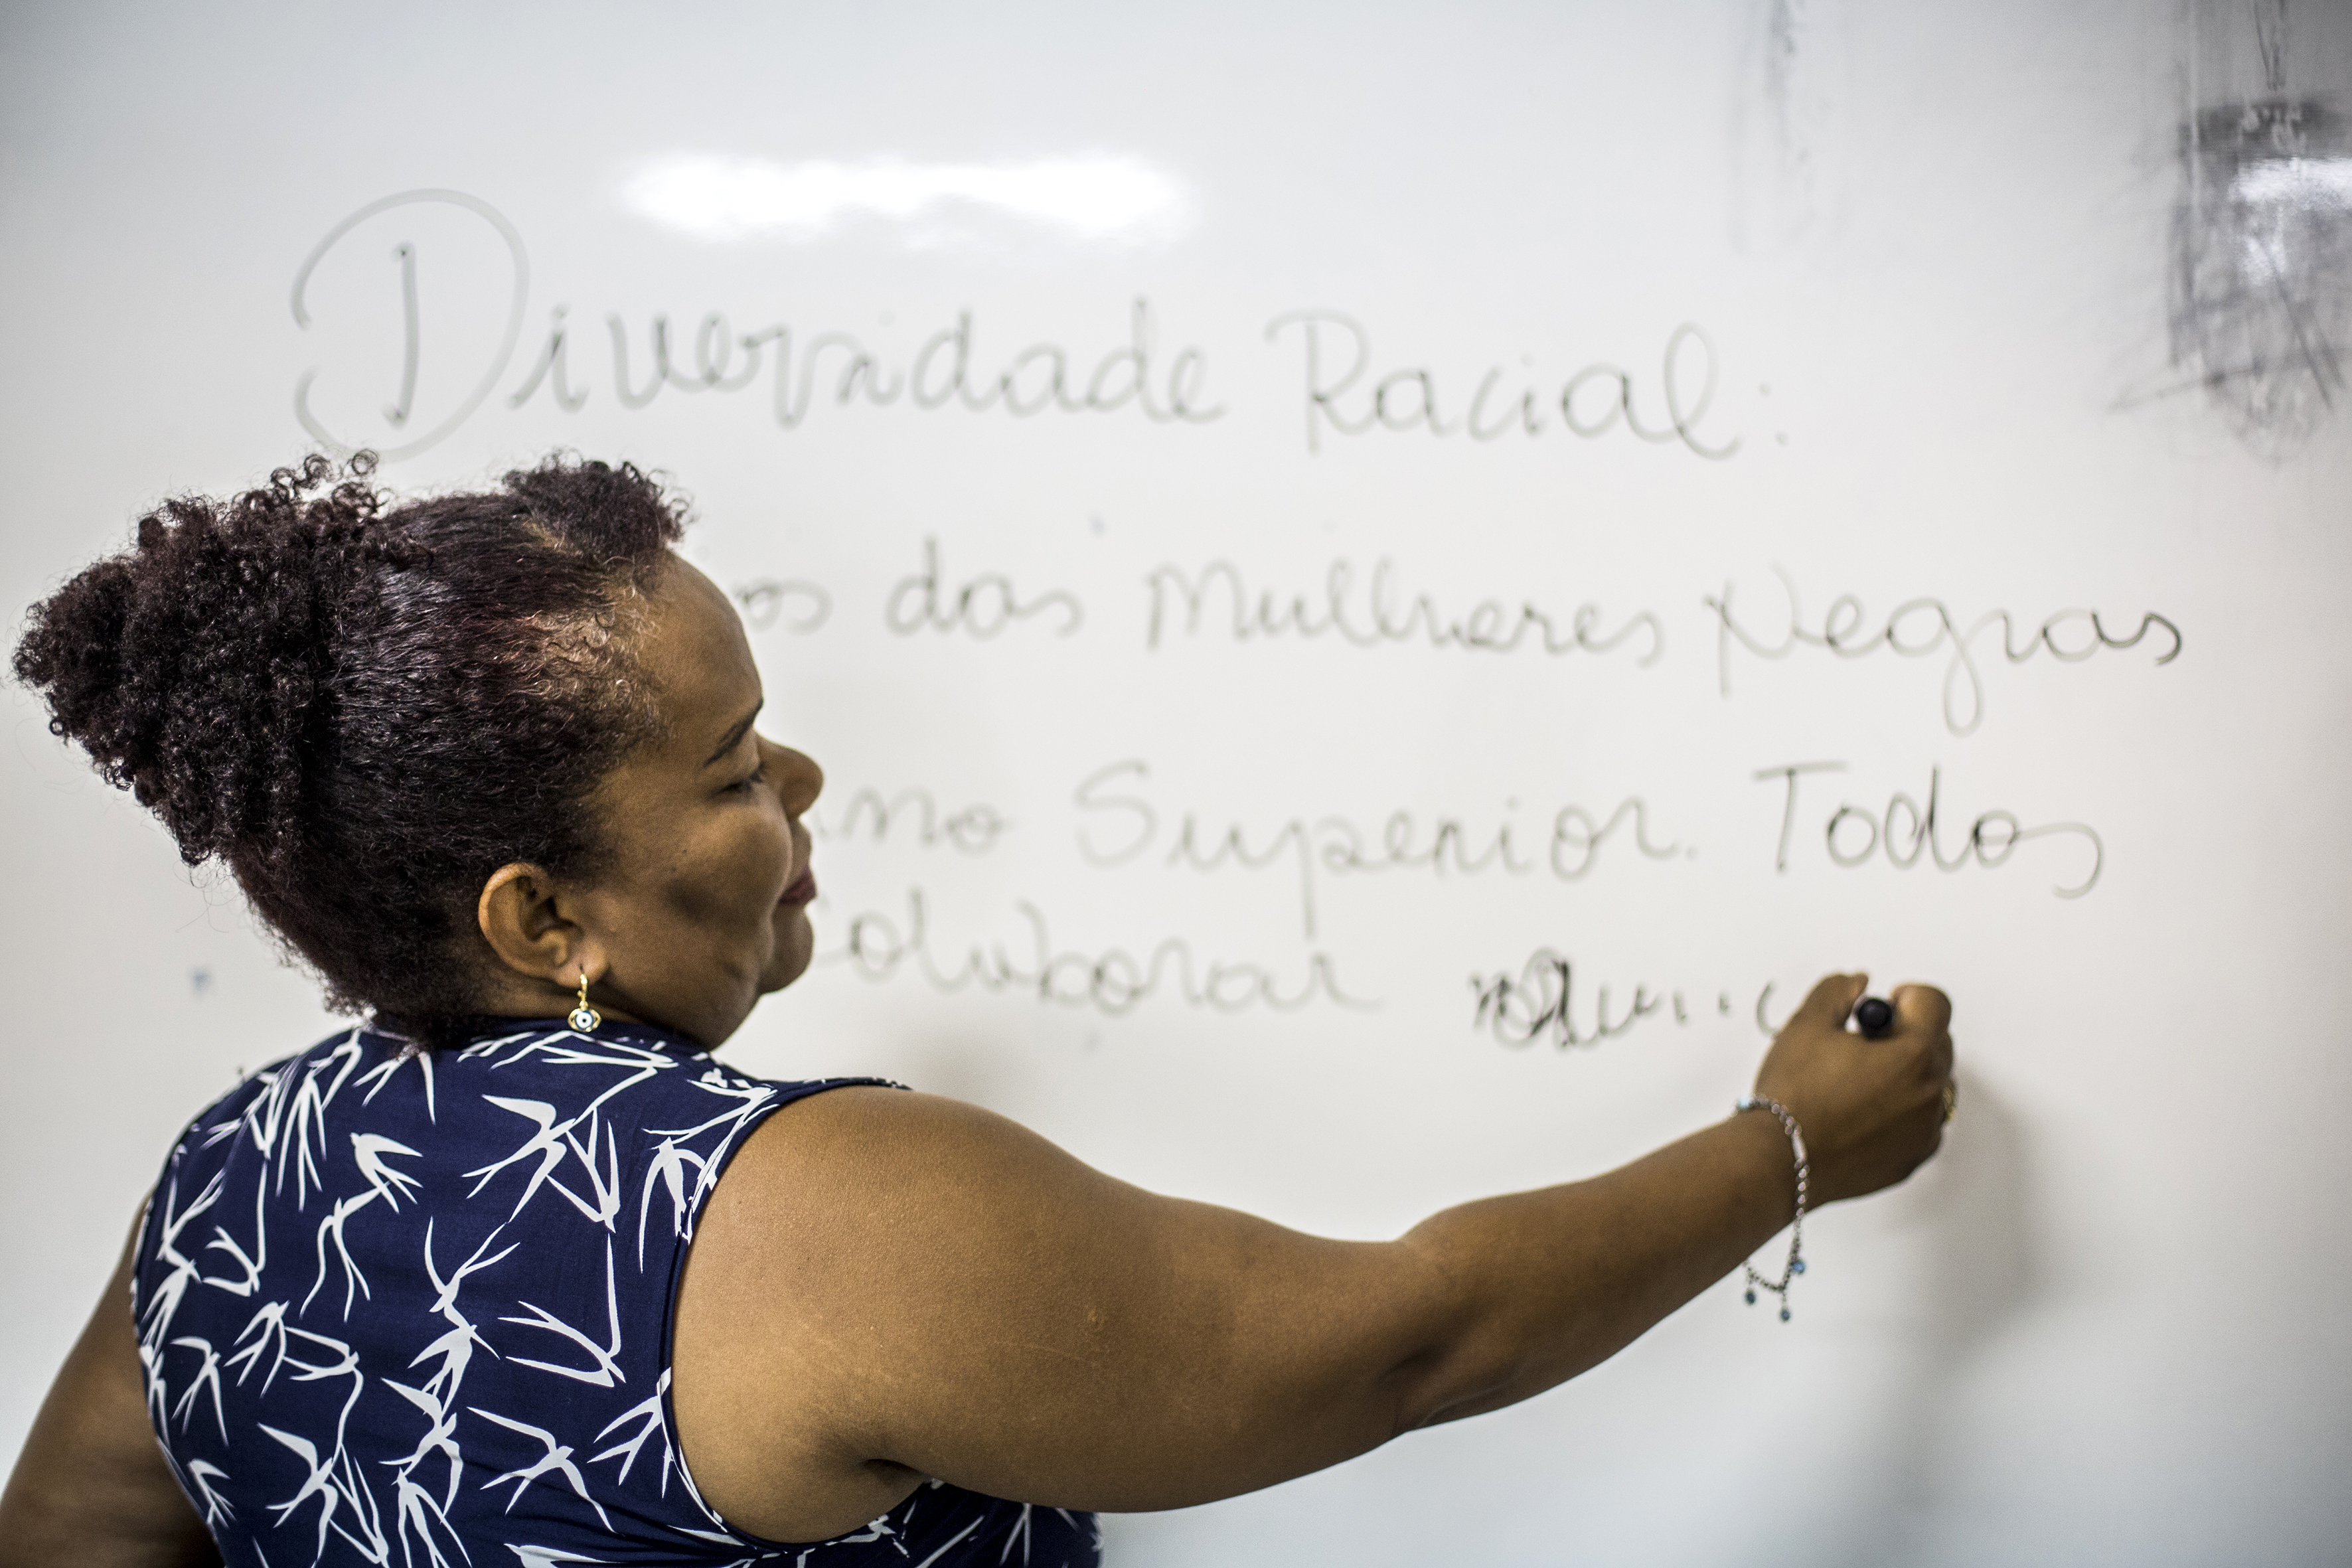 Diversidade Racial:
das Mulheres Negras
Superior. Todos
colaborar